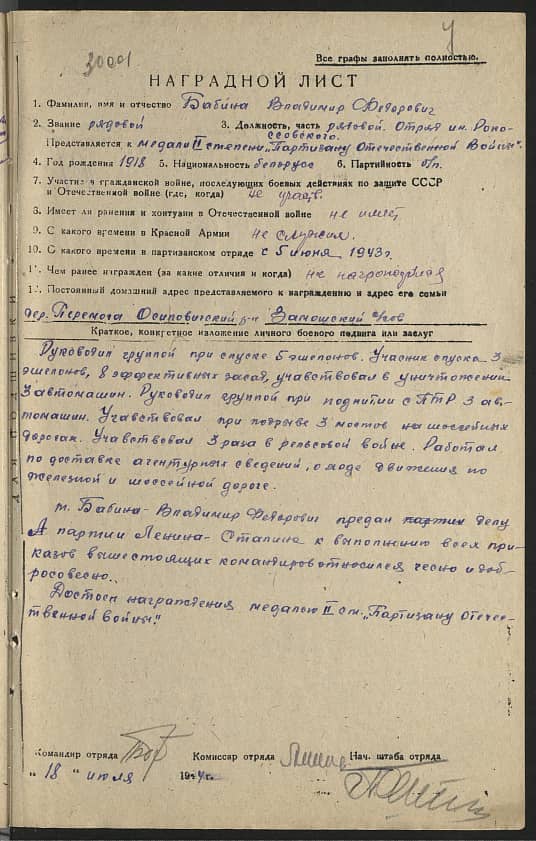 30001
Все графы заполнять полностью.
НАГРАДНОЙ ЛИСТ
1. Фамилия, имя и отчество Бабина Владимир Федорович
2. Звание рядовой 3. Должность, часть рядовой. Отряд им. Роко-
ссовского.
Представляется к медали II степени „Партизану Отечественной Войны".
4. Год рождения 1918 5. Национальность белорус 6. Партийность б/п.
7. Участие в гражданской войне, последующих боевых действиях по защите СССР
и Отечественной войне (где, когда) не участв.
8. Имеет ли ранения и контузии в Отечественной войне не имеет
9. С какого времени в Красной Армии не служил.
10. С какого времени в партизанском отряде с 5 июня 1943 г.
11. Чем ранее награжден (за какие отличия и когда) не награждался
12. Постоянный домашний адрес представляемого к награждению и адрес его семьи
дер. Перемога Осиповичский р-н Замошский с/сов
Краткое, конкретное изложение личного боевого подвига или заслуг
Руководил группой при спуске 5 эшелонов. Участник спуска 3
эшелонов, 8 эффективных засад, учавствовал в уничтожении
3 автомашин. Руководил группой при поднитии с ПТР 3 ав-
томашин. Учавствовал при подрыве 3 мостов на шоссейных
дорогах. Учавствовал 3 раза в рельсовой войне. Работал
по доставке агентурных сведений, о ходе движения по
железной и шоссейной дороге.
т. Бабина Владимир Федорович предан партии делу
партии Ленина-Сталина к выполнению всех при-
казов вышестоящих командиров относился чесно и доб-
росовесно.
Достоен награждения медалью II ст. „Партизану Отечес-
твенной войны."
Командир отряда Комиссар отряда Нач. штаба отряда
„18" июля 1944 г.
ДЛЯ ПОДШИВКИ